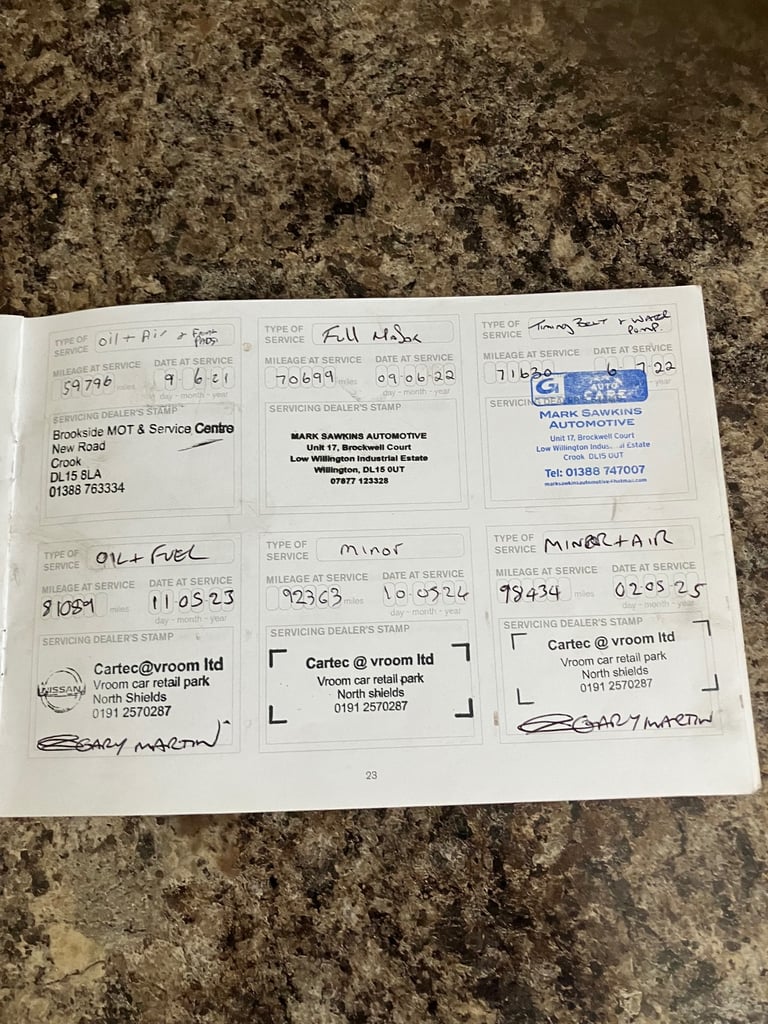 TYPE OF SERVICE oil + Air + Front Pads
MILEAGE AT SERVICE DATE AT SERVICE
59796 miles 9 6 21
day - month - year
SERVICING DEALER'S STAMP
Brookside MOT & Service Centre
New Road
Crook
DL15 8LA
01388 763334
TYPE OF SERVICE Full Major
MILEAGE AT SERVICE DATE AT SERVICE
70699 miles 09-06-22
day - month - year
SERVICING DEALER'S STAMP
MARK SAWKINS AUTOMOTIVE
Unit 17, Brockwell Court
Low Willington Industrial Estate
Willington, DL15 0UT
07877 123328
TYPE OF SERVICE Timing Belt + Water Pump.
MILEAGE AT SERVICE DATE AT SERVICE
71630 6 7 22
year
SERVICING
G AUTO CARE
MARK SAWKINS
AUTOMOTIVE
Unit 17, Brockwell Court
Low Willington Industrial Estate
Crook DL15 0UT
Tel: 01388 747007
marksawkinsautomotive@hotmail.com
TYPE OF SERVICE OIL + FUEL
MILEAGE AT SERVICE DATE AT SERVICE
81089 miles 11-05-23
day - month - year
SERVICING DEALER'S STAMP
NISSAN
Cartec@vroom ltd
Vroom car retail park
North Shields
0191 2570287
GARY MARTIN
TYPE OF SERVICE minor
MILEAGE AT SERVICE DATE AT SERVICE
92363 miles 10-05-24
day - month - year
SERVICING DEALER'S STAMP
Cartec @ vroom ltd
Vroom car retail park
North shields
0191 2570287
TYPE OF SERVICE MINOR + AIR
MILEAGE AT SERVICE DATE AT SERVICE
98434 miles 02-05-25
day - month - year
SERVICING DEALER'S STAMP
Cartec @ vroom ltd
Vroom car retail park
North shields
0191 2570287
GARY MARTIN
23